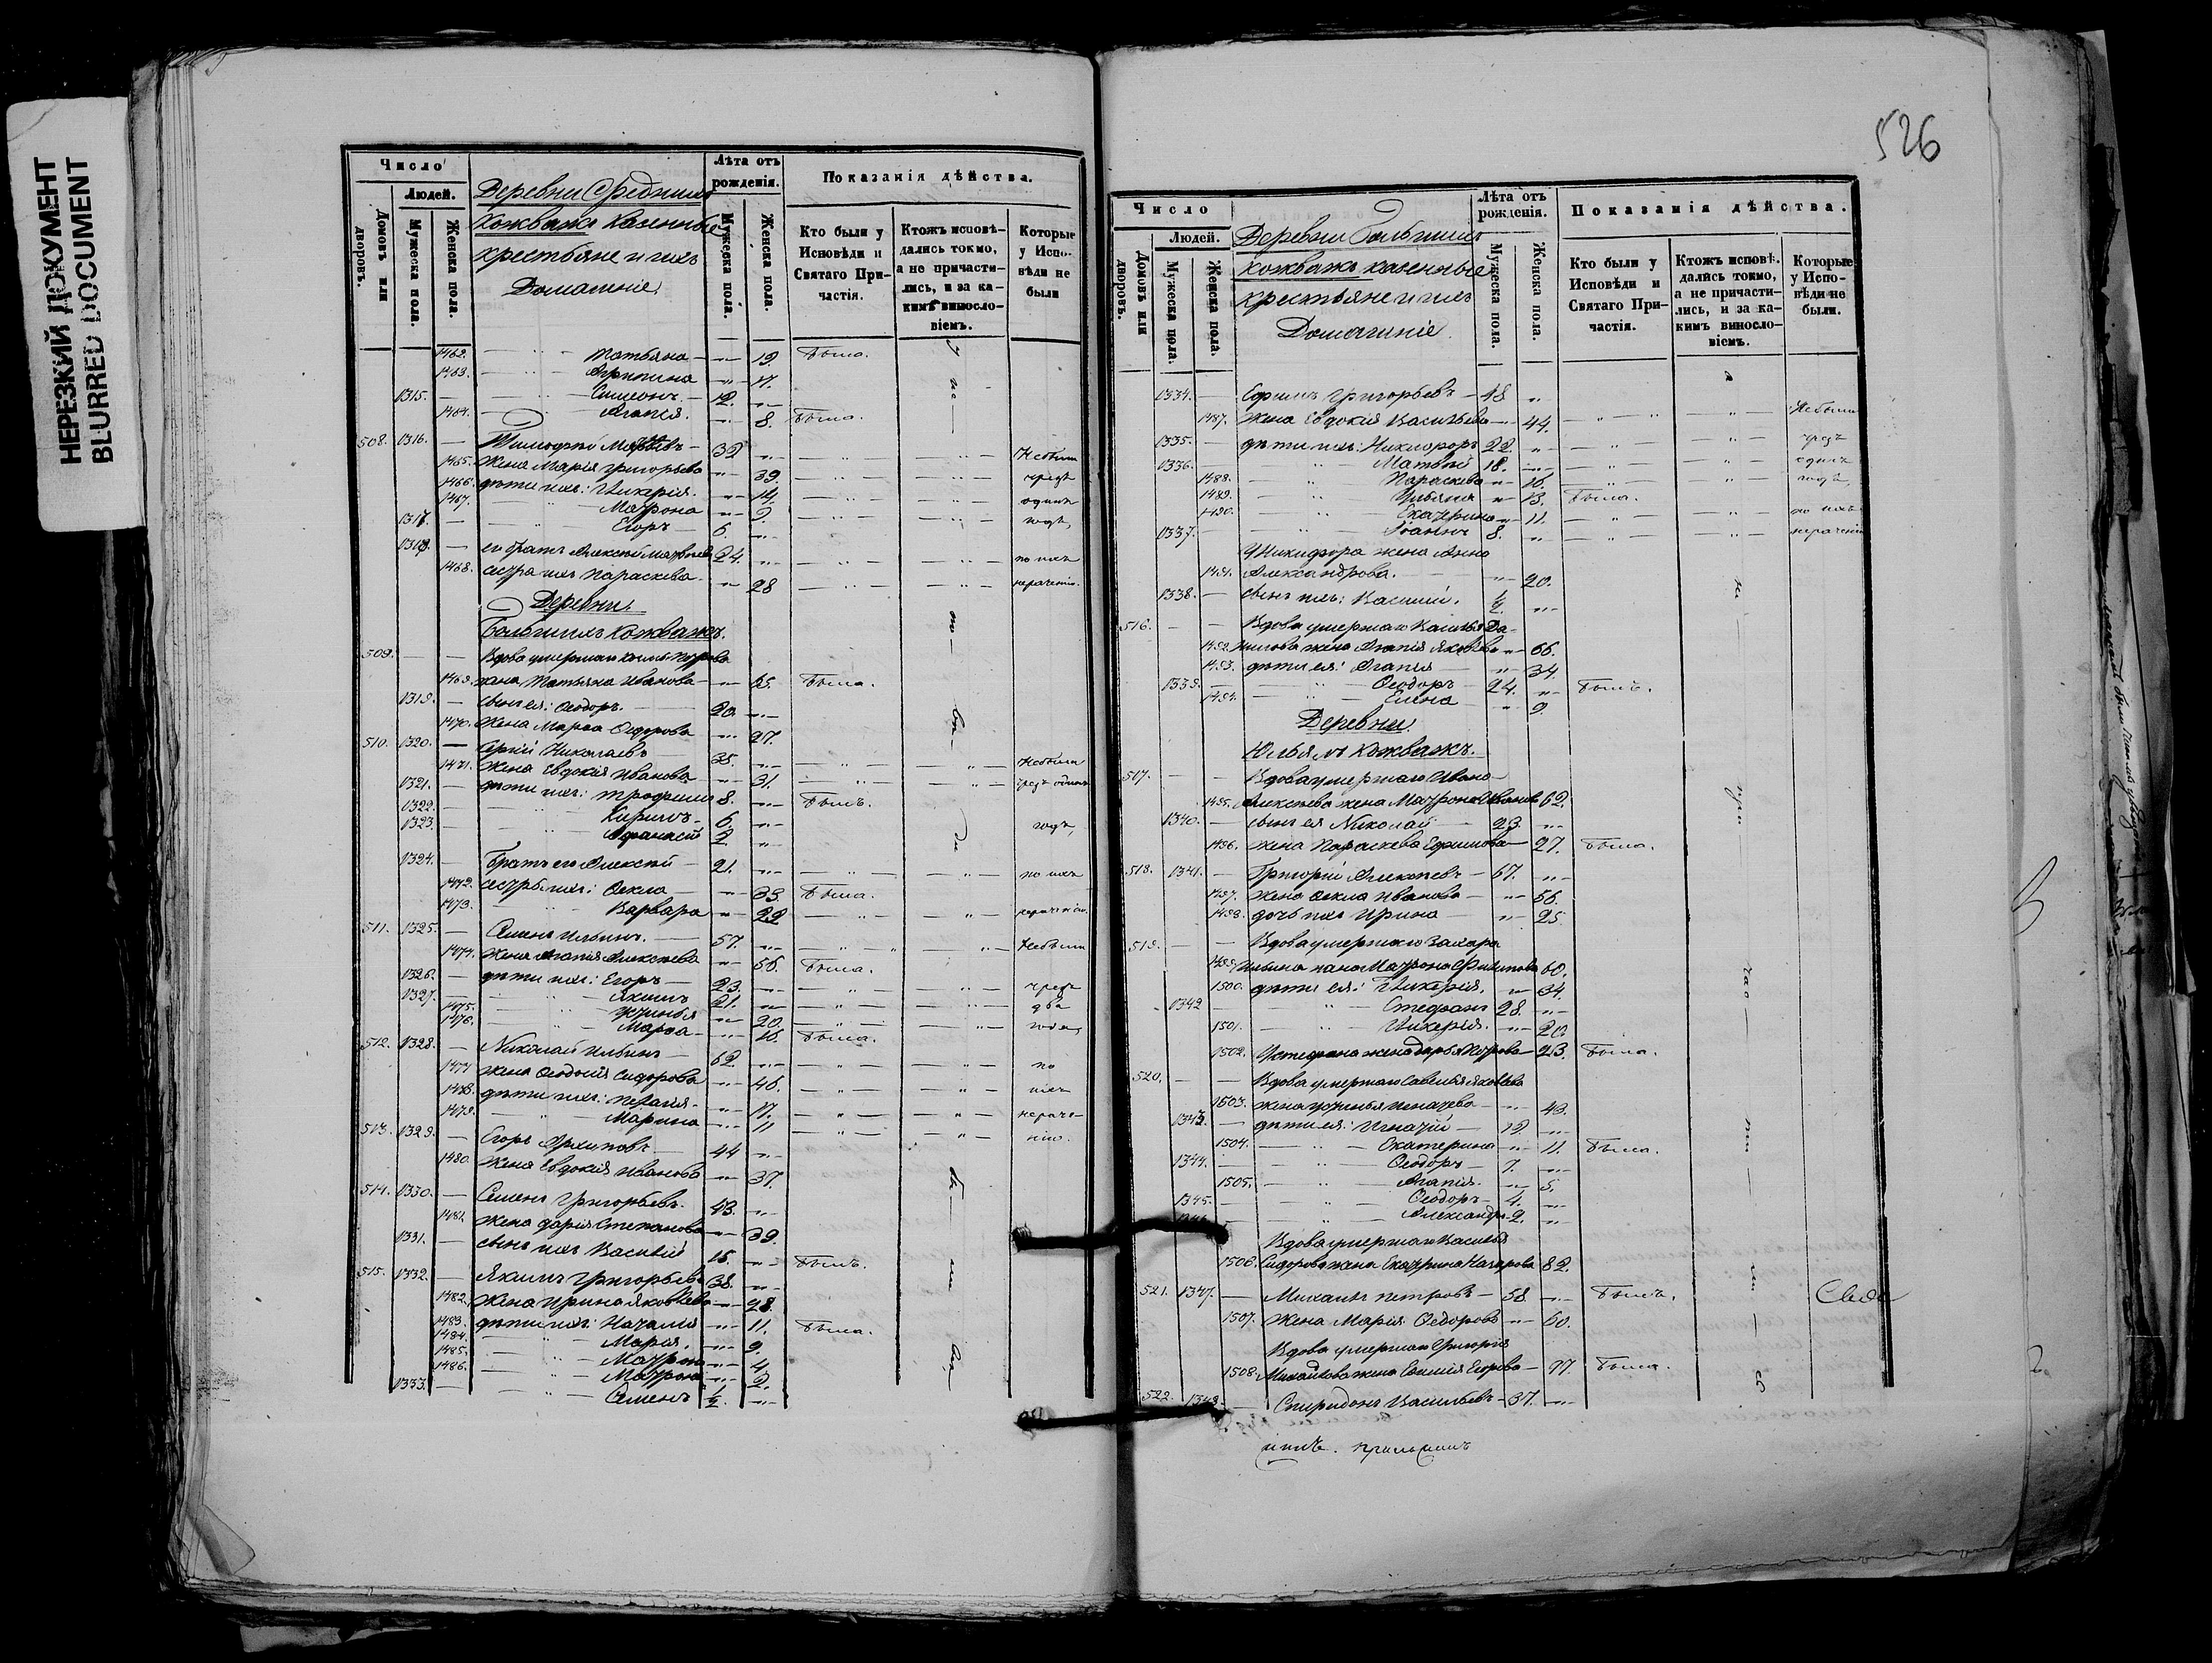 НЕРЕЗКИЙ ДОКУМЕНТ
BLURRED DOCUMENT
Число
Людей.
Домовъ или дворовъ.
Мужеска пола.
Женска пола.
Деревни Среднихъ
Кожважъ казенные
крестьяне и ихъ
Домашніе,
Лѣта отъ рожденія.
Мужеска пола.
Женска пола.
Показанія дѣйства.
Кто были у Исповѣди и Святаго Причастія.
Ктожъ исповѣдались токмо, а не причастились, и за какимъ винословіемъ.
Которые у Исповѣди не были
1462. Татьяна 19. Была.
1463. 17.
1315. Симеонъ. 12.
1464. Агапія. 8. Была.
508. 1316. Тимофей 32
1465. Жена Марія Григорьева 39. Небыли
1466. дѣти ихъ: Гликерія. 14. чрезъ
1467. Матрона 9. одинъ
1317. Егоръ 6. годъ,
1318. его братъ Алексѣй Матвѣевъ 24. по ихъ
1468. сестра ихъ Параскева 28 нерачению.
Деревни.
Большихъ Кожважъ.
509. Вдова умершаго
1469. жена Татьяна Иванова 65. Была.
1319. сынъ ея: Ѳеодоръ. 20.
1470. жена Марѳа Ѳедорова 27.
510. 1320. Сергій Николаевъ 35.
1471. жена Евдокія Иванова 31. Небыли
1321. дѣти ихъ: Трофимъ 8. Былъ. чрезъ одинъ
1322. Кирилъ 6.
1323. Афанасій 2. годъ,
1324. Братъ его Алексѣй 21. по ихъ
1472. сестры ихъ: Ѳекла 33. Была.
1473. Варвара 22
511. 1325. Семенъ Ильинъ. 57. Небыли
1474. жена Агапія Алексѣева 56. Была.
1326. дѣти ихъ: Егоръ 23. чрезъ
1327. Якимъ 21. два
1475. Устинья 20. года,
1476. Марѳа 16. Была.
512. 1328. Николай Ильинъ 62. по
1477 жена Ѳеодосія Сидорова 46. ихъ
1478. дѣти ихъ: Пелагія 17. нераче-
1479. Марина 11 нію.
513. 1329. Егоръ Архиповъ 44
1480. жена Евдокія Иванова 37.
514. 1330. Семенъ Григорьевъ. 43.
1481. жена Дарія Степанова 39.
1331. сынъ ихъ Василій 15. Былъ.
515. 1332. Якимъ Григорьевъ 38.
1482. жена Ирина Яковлева 28.
1483. дѣти ихъ: Наталія 11. Была.
1484. Марія. 9.
1485. Матрона 4.
1486. Матрона 2.
1333. Семенъ ½.
526
Число
Людей.
Домовъ или дворовъ.
Мужеска пола.
Женска пола.
Деревни Большихъ
кожважъ казенные
крестьяне и ихъ
Домашніе.
Лѣта отъ рожденія.
Мужеска пола.
Женска пола.
Показанія дѣйства.
Кто были у Исповѣди и Святаго Причастія.
Ктожъ исповѣдались токмо, а не причастились, и за какимъ винословіемъ.
Которые у Исповѣди не были.
1334. Ефимъ Григорьевъ 48
1487. жена Евдокія Васильева 44. Небыли
1335. дѣти ихъ: Никифоръ 22. чрезъ
1336. Матвѣй 18. одинъ
1488. Параскева 16. годъ,
1489. Ульяна 13. Была.
1490. Екатерина 11. по ихъ
1337. Іоаннъ 8. нераченію
У Никифора жена Анна
1491. Александрова. 20.
1338. сынъ ихъ: Василій. ½.
516. Вдова умершаго Василья Да-
1492. нилова жена Агапія Яковлева 66.
1493. дѣти ея: Агапія 34.
1339. Ѳеодоръ 24. Былъ.
1494. Елена 9.
Деревни.
Юльялъ Кожважъ.
517. Вдова умершаго Ивана
1495. Алексѣева жена Матрона Иванова 62.
1340. сынъ ея Николай 23.
1496. жена Параскева Ефимова 27. Была.
518. 1341. Григорій Алексѣевъ 67.
1497. жена Ѳекла Иванова 56.
1498. дочь ихъ Ирина 25.
519. Вдова умершаго Захара
1499. Ильина жена Матрона Филипова 60.
1500. дѣти ея: Гликерія. 34.
1342 Стефанъ 28.
1501. Гликерія. 20
1502. У Стефана жена Дарья Петрова 23. Была.
520. Вдова умершаго Савелья Яковлева
1503. жена Устинья Игнатьева 43.
1343. дѣти ея: Игнатій 12
1504. Екатерина 11. Была.
1344. Ѳеодоръ 7.
1505. Агапія. 5.
1345. Ѳеодоръ 4.
Александръ 2.
Вдова умершаго Василья
1506. Сидорова жена Екатерина Назарова 82.
521. 1347. Михаилъ Петровъ 58. Былъ.
1507. жена Марія Ѳедорова 60.
Вдова умершаго Григорія
1508. Михайлова жена Евгенія Егорова 27. Была.
522. 1348. Спиридонъ Васильевъ 37.